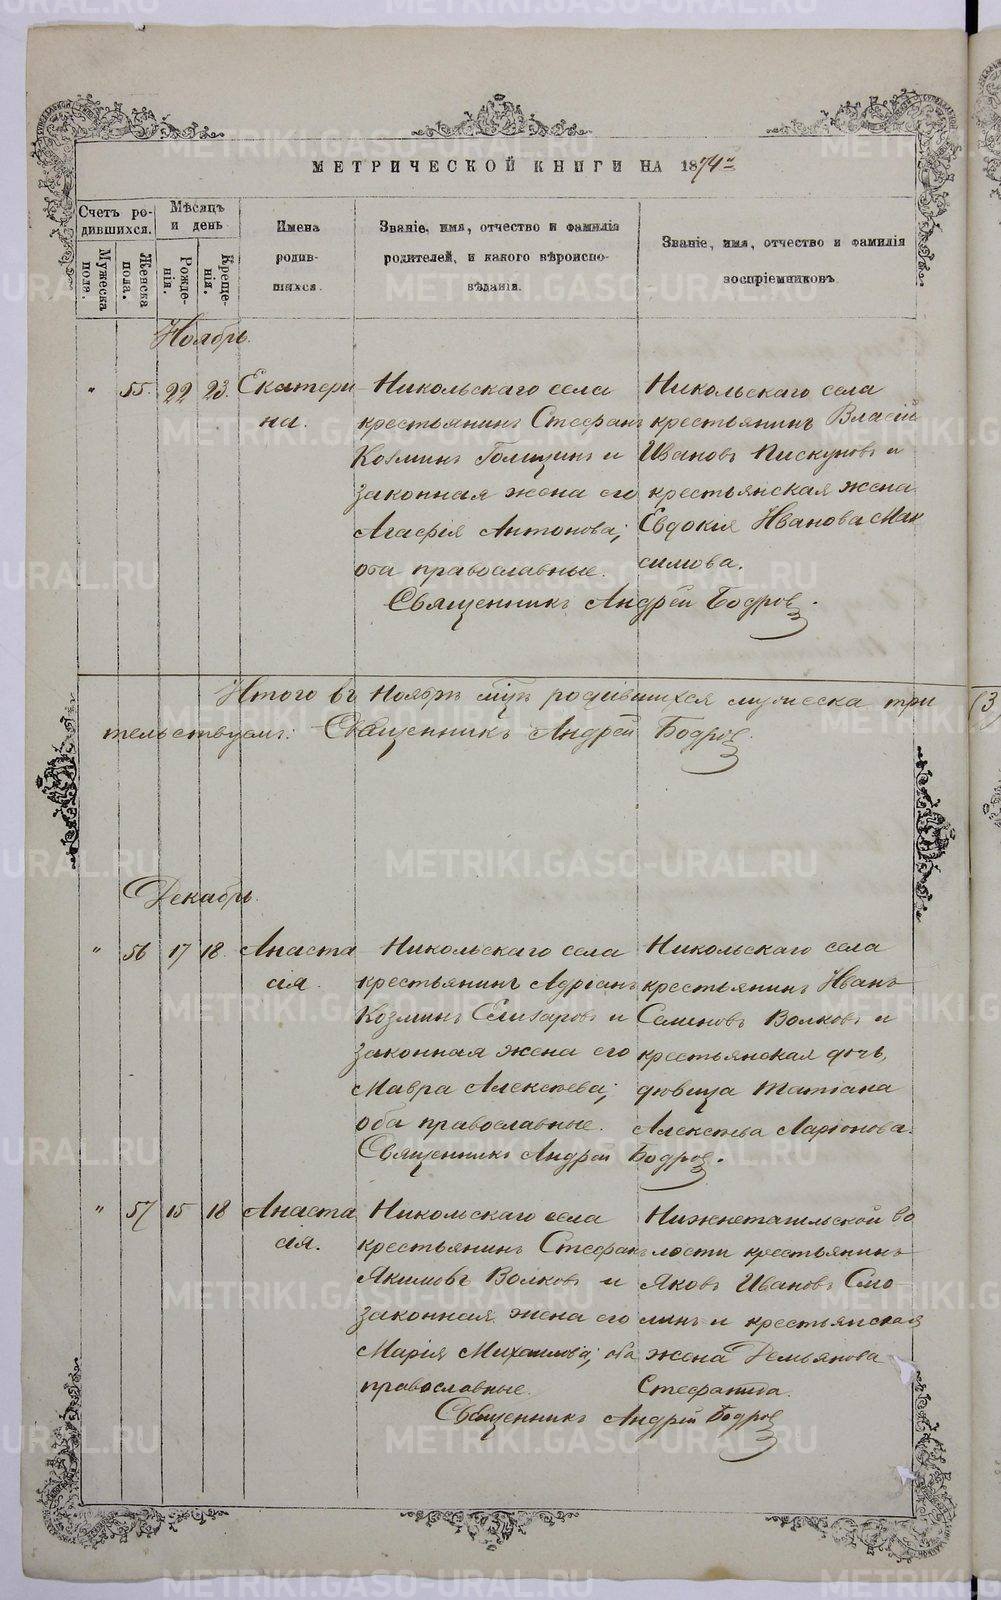 МЕТРИЧЕСКОЙ КНИГИ НА 1874 г.
Счетъ родившихся.
Мужеска пола.
Женска пола.
Мѣсяцъ и день
Рожденія.
Крещенія.
Имена родившихся.
Званіе, имя, отчество и фамилія
родителей, и какого вѣроиспо-
вѣданія.
Званіе, имя, отчество и фамилія
воспріемниковъ
Ноябрь.
" 55. 22 23. Екатери
на.
Никольскаго села
крестьянинъ Стефанъ
Козминъ Голицинъ и
законная жена его
Агафія Антонова;
оба православные.
Никольскаго села
крестьянинъ Власій
Ивановъ Пискуновъ и
крестьянская жена
Евдокія Иванова Мак
симова.
Священникъ Андрей Бодровъ.
Итого въ Ноябрѣ м-цѣ родившихся мужеска три
тельствуемъ: Священникъ Андрей Бодровъ.
(3)
Декабрь.
" 56 17 18. Анаста
сія.
Никольскаго села
крестьянинъ Адріанъ
Козминъ Елизаровъ и
законная жена его
Мавра Алексѣева;
оба православные.
Никольскаго села
крестьянинъ Иванъ
Семеновъ Волковъ и
крестьянская дочь,
дѣвица Татіана
Алексѣева Ларіонова.
Священникъ Андрей Бодровъ.
" 57 15 18 Анаста
сія.
Никольскаго села
крестьянинъ Стефанъ
Якимовъ Волковъ и
законная жена его
Марія Михаилова; оба
православные.
Нижнетагильской во
лости крестьянинъ
Яковъ Ивановъ Смо
линъ и крестьянская
жена Демьянова
Стефанида.
Священникъ Андрей Бодровъ
METRIKI.GASO-URAL.RU